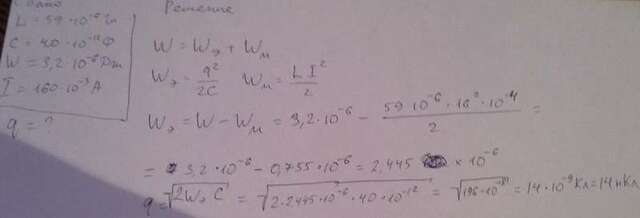 Дано
L = 59·10⁻⁶ Гн
C = 40·10⁻¹² Ф
W = 3,2·10⁻⁶ Дж
I = 160·10⁻³ А
q = ?
Решение
W = Wэ + Wм
Wэ = q²/2C Wм = LI²/2
Wэ = W - Wм = 3,2·10⁻⁶ - 59·10⁻⁶·16²·10⁻⁴/2 =
= 3,2·10⁻⁶ - 0,755·10⁻⁶ = 2,445 × 10⁻⁶
q = √2Wэ C = √2·2.2445·10⁻⁶·40·10⁻¹² = √196·10⁻¹⁸ = 14·10⁻⁹ Кл = 14 нКл